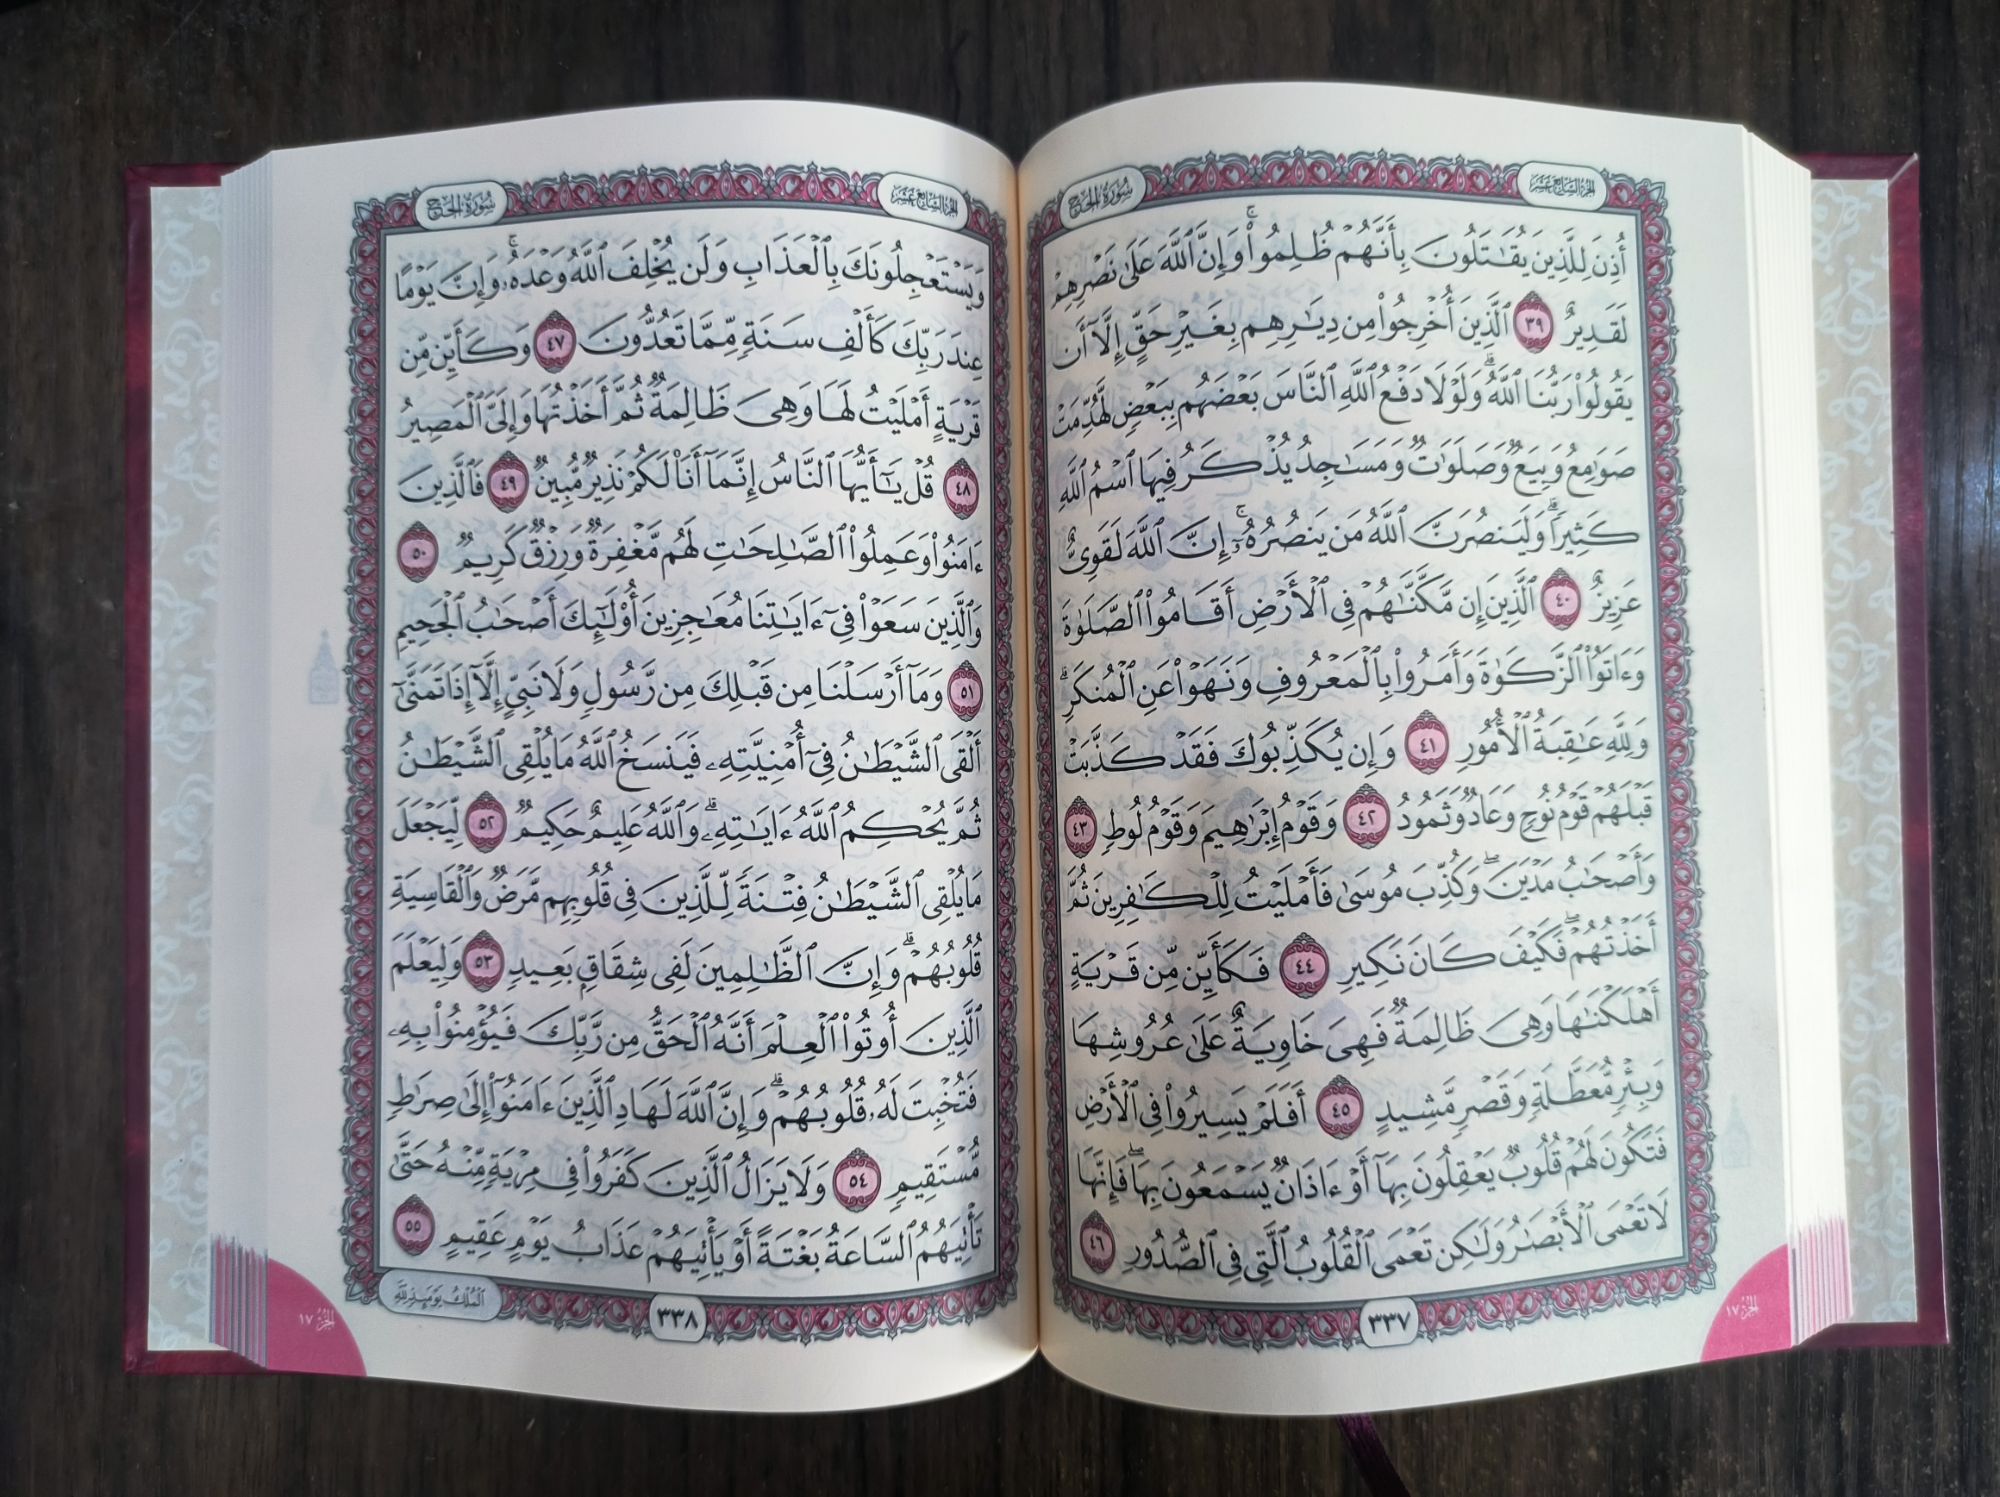 الجزء السابع عشر
سورة الحج
أُذِنَ لِلَّذِينَ يُقَٰتَلُونَ بِأَنَّهُمْ ظُلِمُوا۟ ۚ وَإِنَّ ٱللَّهَ عَلَىٰ نَصْرِهِمْ
لَقَدِيرٌ ٣٩ ٱلَّذِينَ أُخْرِجُوا۟ مِن دِيَٰرِهِم بِغَيْرِ حَقٍّ إِلَّآ أَن
يَقُولُوا۟ رَبُّنَا ٱللَّهُ ۗ وَلَوْلَا دَفْعُ ٱللَّهِ ٱلنَّاسَ بَعْضَهُم بِبَعْضٍ لَّهُدِّمَتْ
صَوَٰمِعُ وَبِيَعٌ وَصَلَوَٰتٌ وَمَسَٰجِدُ يُذْكَرُ فِيهَا ٱسْمُ ٱللَّهِ
كَثِيرًا ۗ وَلَيَنصُرَنَّ ٱللَّهُ مَن يَنصُرُهُۥٓ ۚ إِنَّ ٱللَّهَ لَقَوِىٌّ
عَزِيزٌ ٤٠ ٱلَّذِينَ إِن مَّكَّنَّٰهُمْ فِى ٱلْأَرْضِ أَقَامُوا۟ ٱلصَّلَوٰةَ
وَءَاتَوُا۟ ٱلزَّكَوٰةَ وَأَمَرُوا۟ بِٱلْمَعْرُوفِ وَنَهَوْا۟ عَنِ ٱلْمُنكَرِ ۗ
وَلِلَّهِ عَٰقِبَةُ ٱلْأُمُورِ ٤١ وَإِن يُكَذِّبُوكَ فَقَدْ كَذَّبَتْ
قَبْلَهُمْ قَوْمُ نُوحٍ وَعَادٌ وَثَمُودُ ٤٢ وَقَوْمُ إِبْرَٰهِيمَ وَقَوْمُ لُوطٍ ٤٣
وَأَصْحَٰبُ مَدْيَنَ ۖ وَكُذِّبَ مُوسَىٰ فَأَمْلَيْتُ لِلْكَٰفِرِينَ ثُمَّ
أَخَذْتُهُمْ ۖ فَكَيْفَ كَانَ نَكِيرِ ٤٤ فَكَأَيِّن مِّن قَرْيَةٍ
أَهْلَكْنَٰهَا وَهِىَ ظَالِمَةٌ فَهِىَ خَاوِيَةٌ عَلَىٰ عُرُوشِهَا
وَبِئْرٍ مُّعَطَّلَةٍ وَقَصْرٍ مَّشِيدٍ ٤٥ أَفَلَمْ يَسِيرُوا۟ فِى ٱلْأَرْضِ
فَتَكُونَ لَهُمْ قُلُوبٌ يَعْقِلُونَ بِهَآ أَوْ ءَاذَانٌ يَسْمَعُونَ بِهَا ۖ فَإِنَّهَا
لَا تَعْمَى ٱلْأَبْصَٰرُ وَلَٰكِن تَعْمَى ٱلْقُلُوبُ ٱلَّتِى فِى ٱلصُّدُورِ ٤٦
٣٣٧
الجزء ١٧
الجزء السابع عشر
سورة الحج
وَيَسْتَعْجِلُونَكَ بِٱلْعَذَابِ وَلَن يُخْلِفَ ٱللَّهُ وَعْدَهُۥ ۚ وَإِنَّ يَوْمًا
عِندَ رَبِّكَ كَأَلْفِ سَنَةٍ مِّمَّا تَعُدُّونَ ٤٧ وَكَأَيِّن مِّن
قَرْيَةٍ أَمْلَيْتُ لَهَا وَهِىَ ظَالِمَةٌ ثُمَّ أَخَذْتُهَا وَإِلَىَّ ٱلْمَصِيرُ
٤٨ قُلْ يَٰٓأَيُّهَا ٱلنَّاسُ إِنَّمَآ أَنَا۠ لَكُمْ نَذِيرٌ مُّبِينٌ ٤٩ فَٱلَّذِينَ
ءَامَنُوا۟ وَعَمِلُوا۟ ٱلصَّٰلِحَٰتِ لَهُم مَّغْفِرَةٌ وَرِزْقٌ كَرِيمٌ ٥٠
وَٱلَّذِينَ سَعَوْا۟ فِىٓ ءَايَٰتِنَا مُعَٰجِزِينَ أُو۟لَٰٓئِكَ أَصْحَٰبُ ٱلْجَحِيمِ
٥١ وَمَآ أَرْسَلْنَا مِن قَبْلِكَ مِن رَّسُولٍ وَلَا نَبِىٍّ إِلَّآ إِذَا تَمَنَّىٰٓ
أَلْقَى ٱلشَّيْطَٰنُ فِىٓ أُمْنِيَّتِهِۦ فَيَنسَخُ ٱللَّهُ مَا يُلْقِى ٱلشَّيْطَٰنُ
ثُمَّ يُحْكِمُ ٱللَّهُ ءَايَٰتِهِۦ ۗ وَٱللَّهُ عَلِيمٌ حَكِيمٌ ٥٢ لِّيَجْعَلَ
مَا يُلْقِى ٱلشَّيْطَٰنُ فِتْنَةً لِّلَّذِينَ فِى قُلُوبِهِم مَّرَضٌ وَٱلْقَاسِيَةِ
قُلُوبُهُمْ ۗ وَإِنَّ ٱلظَّٰلِمِينَ لَفِى شِقَاقٍۭ بَعِيدٍ ٥٣ وَلِيَعْلَمَ
ٱلَّذِينَ أُوتُوا۟ ٱلْعِلْمَ أَنَّهُ ٱلْحَقُّ مِن رَّبِّكَ فَيُؤْمِنُوا۟ بِهِۦ
فَتُخْبِتَ لَهُۥ قُلُوبُهُمْ ۗ وَإِنَّ ٱللَّهَ لَهَادِ ٱلَّذِينَ ءَامَنُوٓا۟ إِلَىٰ صِرَٰطٍ
مُّسْتَقِيمٍ ٥٤ وَلَا يَزَالُ ٱلَّذِينَ كَفَرُوا۟ فِى مِرْيَةٍ مِّنْهُ حَتَّىٰ
تَأْتِيَهُمُ ٱلسَّاعَةُ بَغْتَةً أَوْ يَأْتِيَهُمْ عَذَابُ يَوْمٍ عَقِيمٍ ٥٥
ٱلْمُلْكُ يَوْمَئِذٍ لِّلَّهِ
٣٣٨
الجزء ١٧